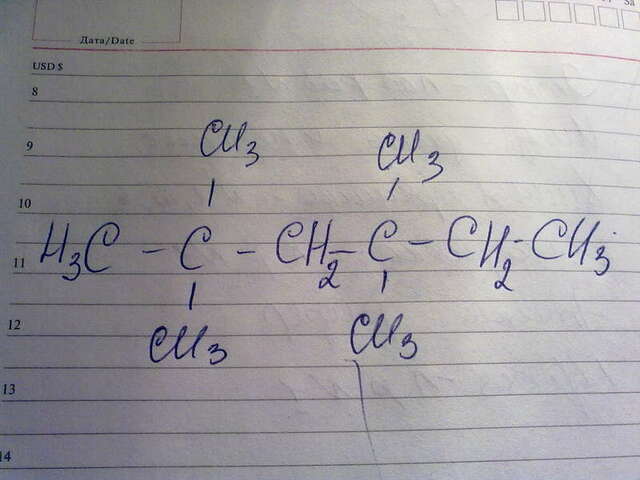 Sa
Дата/Date
USD $
8
9
10
11
12
13
14
CH3 CH3
H3C - C - CH2 - C - CH2 - CH3
CH3 CH3